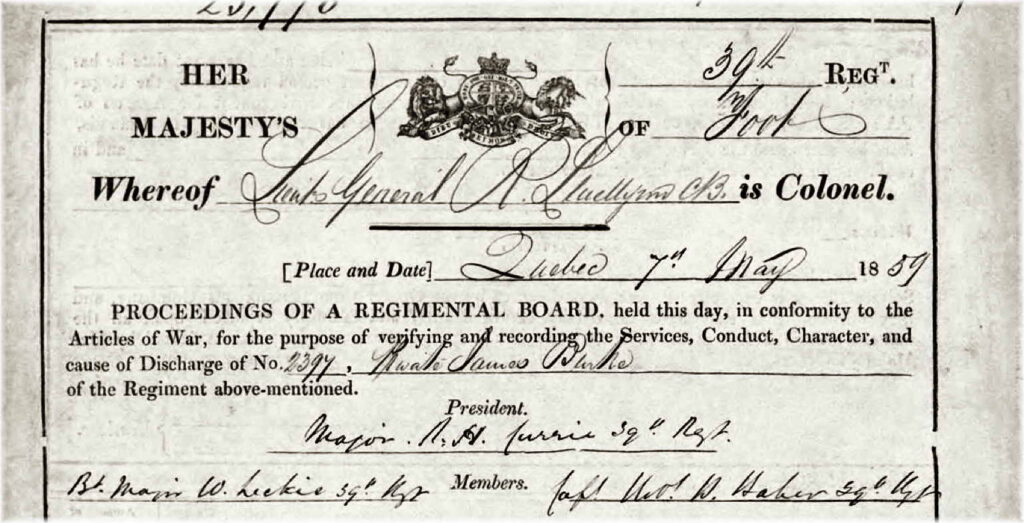 HER 39th REGT.
MAJESTY'S OF Foot
Whereof Lieut General R. Lluellyn CB. is Colonel.
[Place and Date] Quebec 7th May 1859
PROCEEDINGS OF A REGIMENTAL BOARD, held this day, in conformity to the
Articles of War, for the purpose of verifying and recording the Services, Conduct, Character, and
cause of Discharge of No. 2397, Private James Burke
of the Regiment above-mentioned.
President.
Major. R. H. Currie 39th Regt.
Bt. Major W. Leckie 39th Rgt Members. Capt Robt. B. Baker 39th Rgt